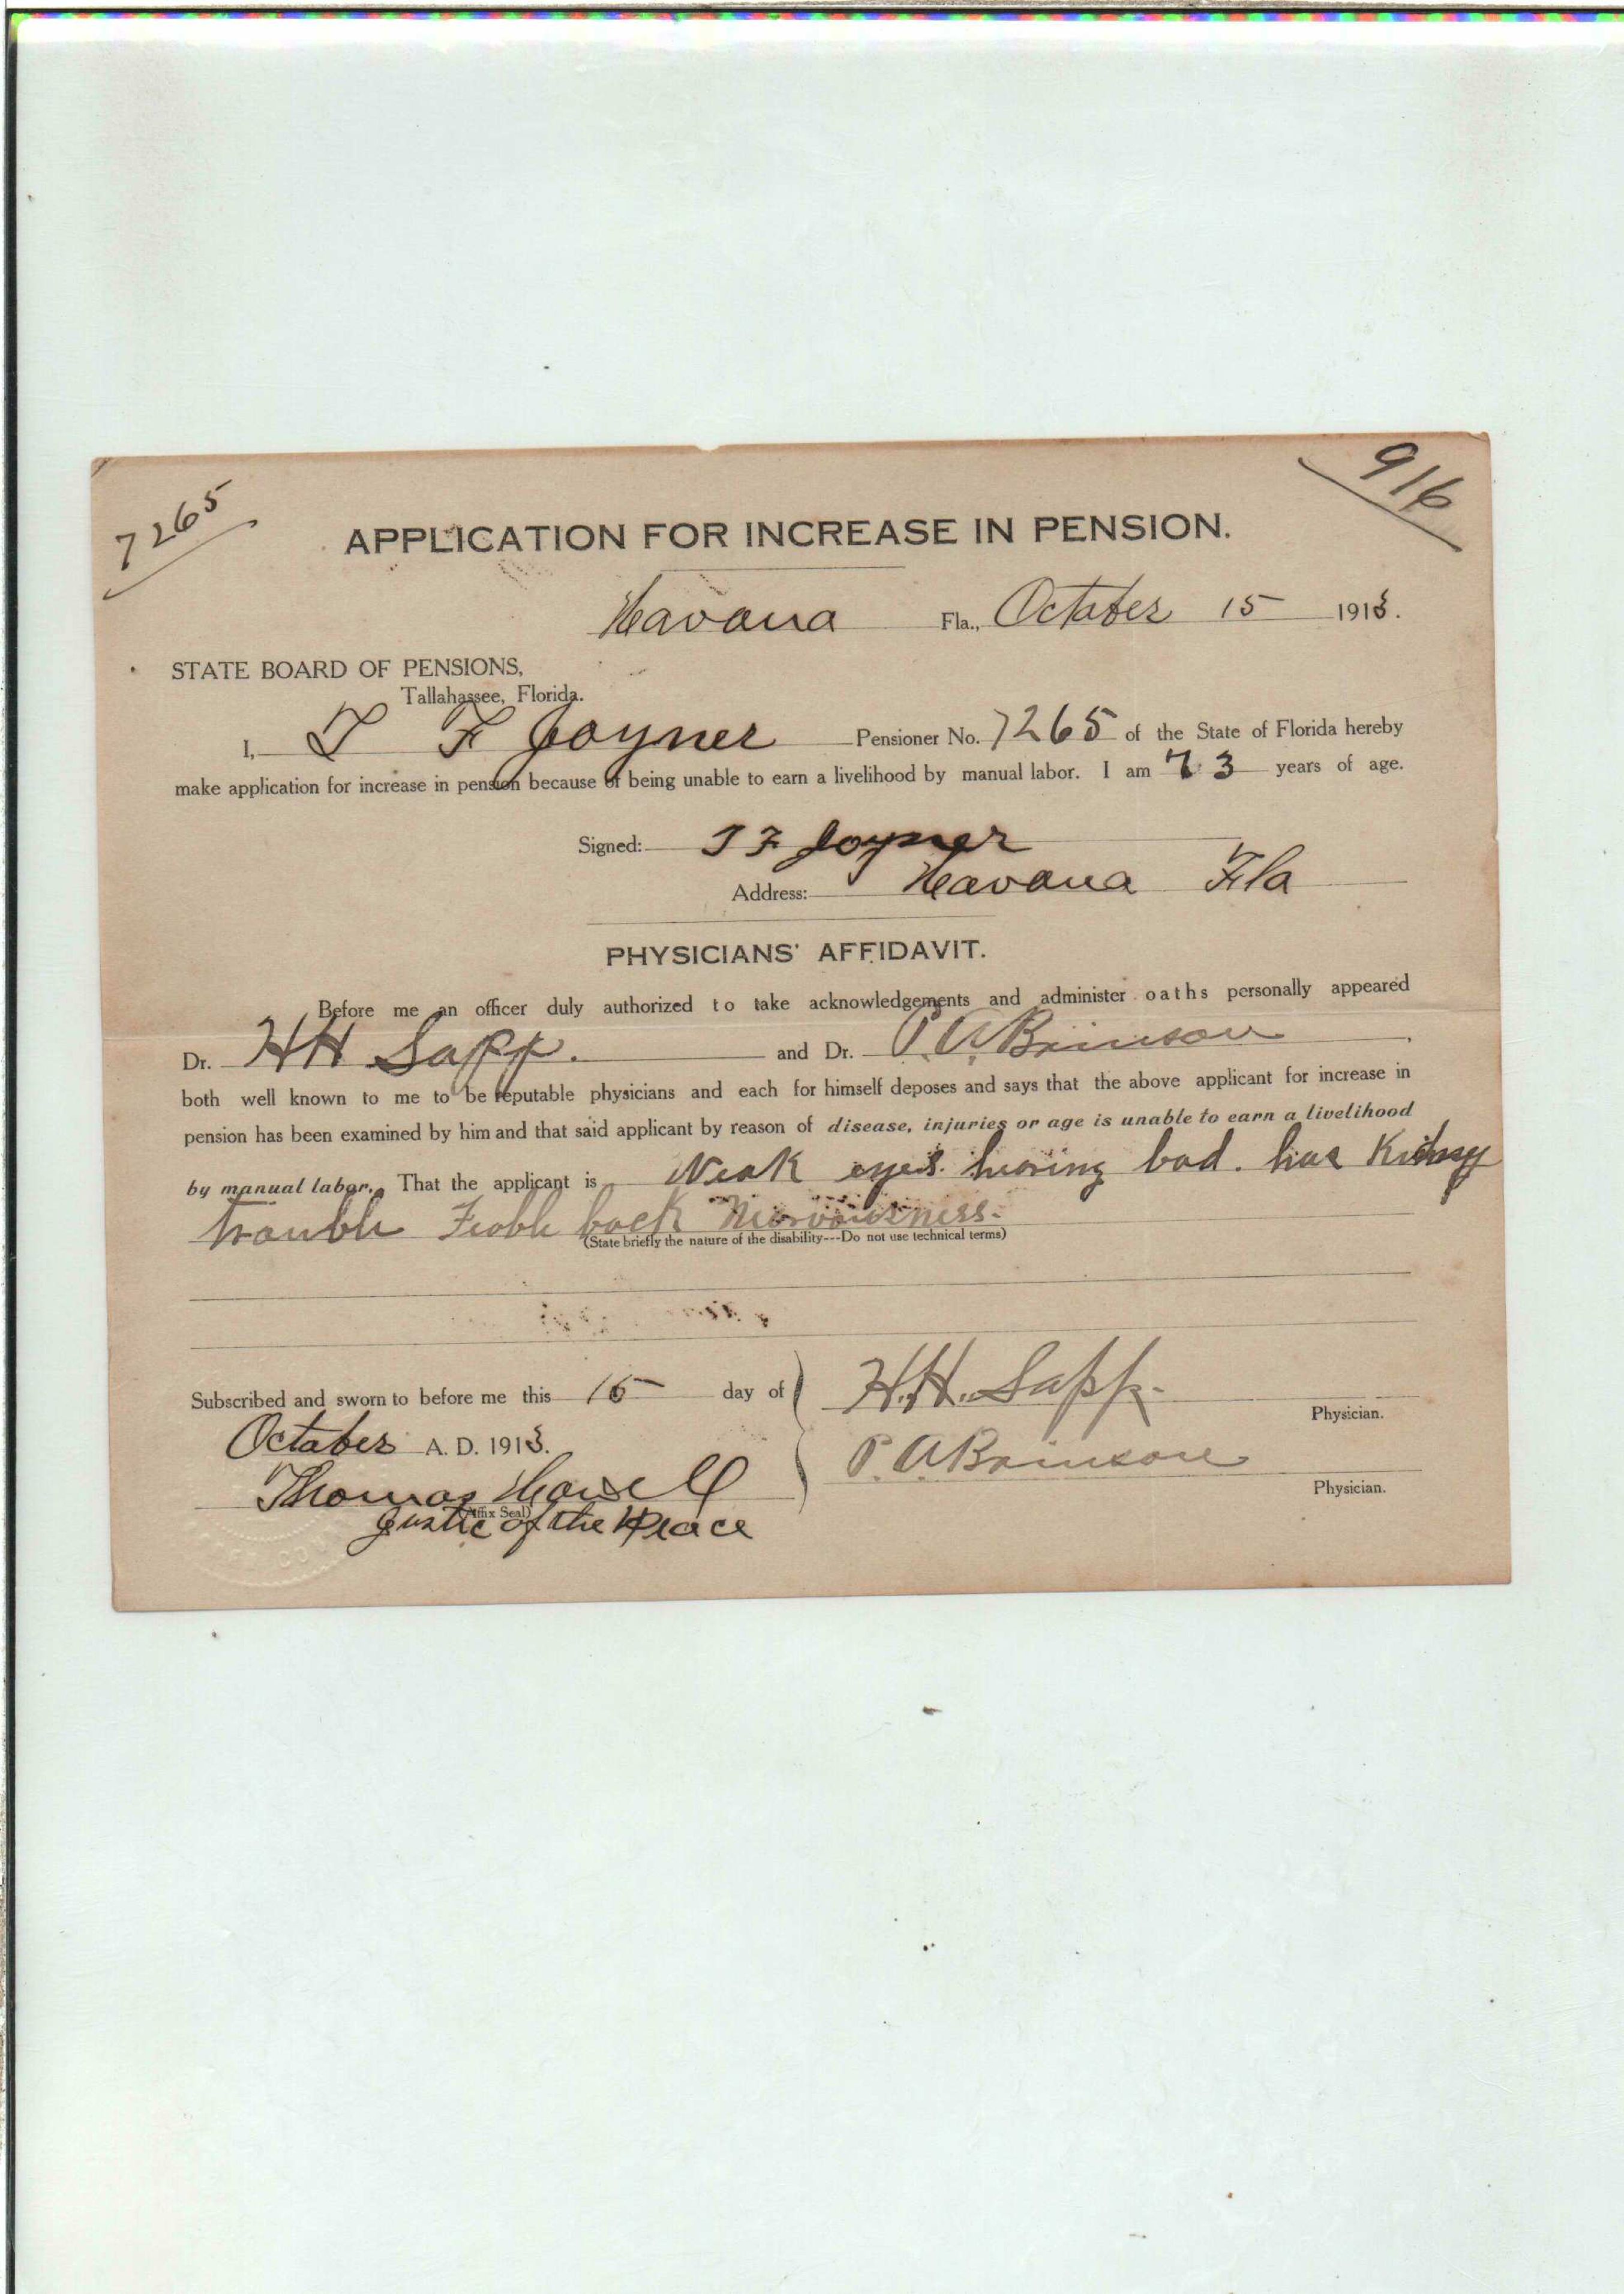 7265
916
APPLICATION FOR INCREASE IN PENSION.
Havana Fla., October 15 1913.
STATE BOARD OF PENSIONS,
Tallahassee, Florida.
I, T F Joyner Pensioner No. 7265 of the State of Florida hereby
make application for increase in pension because of being unable to earn a livelihood by manual labor. I am 73 years of age.
Signed: T F Joyner
Address: Havana Fla
PHYSICIANS' AFFIDAVIT.
Before me an officer duly authorized to take acknowledgements and administer oaths personally appeared
Dr. HH Sapp. and Dr. P. A. Brinson,
both well known to me to be reputable physicians and each for himself deposes and says that the above applicant for increase in
pension has been examined by him and that said applicant by reason of disease, injuries or age is unable to earn a livelihood
by manual labor. That the applicant is Weak eyes. hearing bad. has Kidney
trouble Feoble back Nervousness.
(State briefly the nature of the disability---Do not use technical terms)
Subscribed and sworn to before me this 15 day of
October A. D. 1913.
H.H. Sapp.
Physician.
P. A. Brinson
Physician.
Thomas Howell
(Affix Seal)
Justic of the Peace